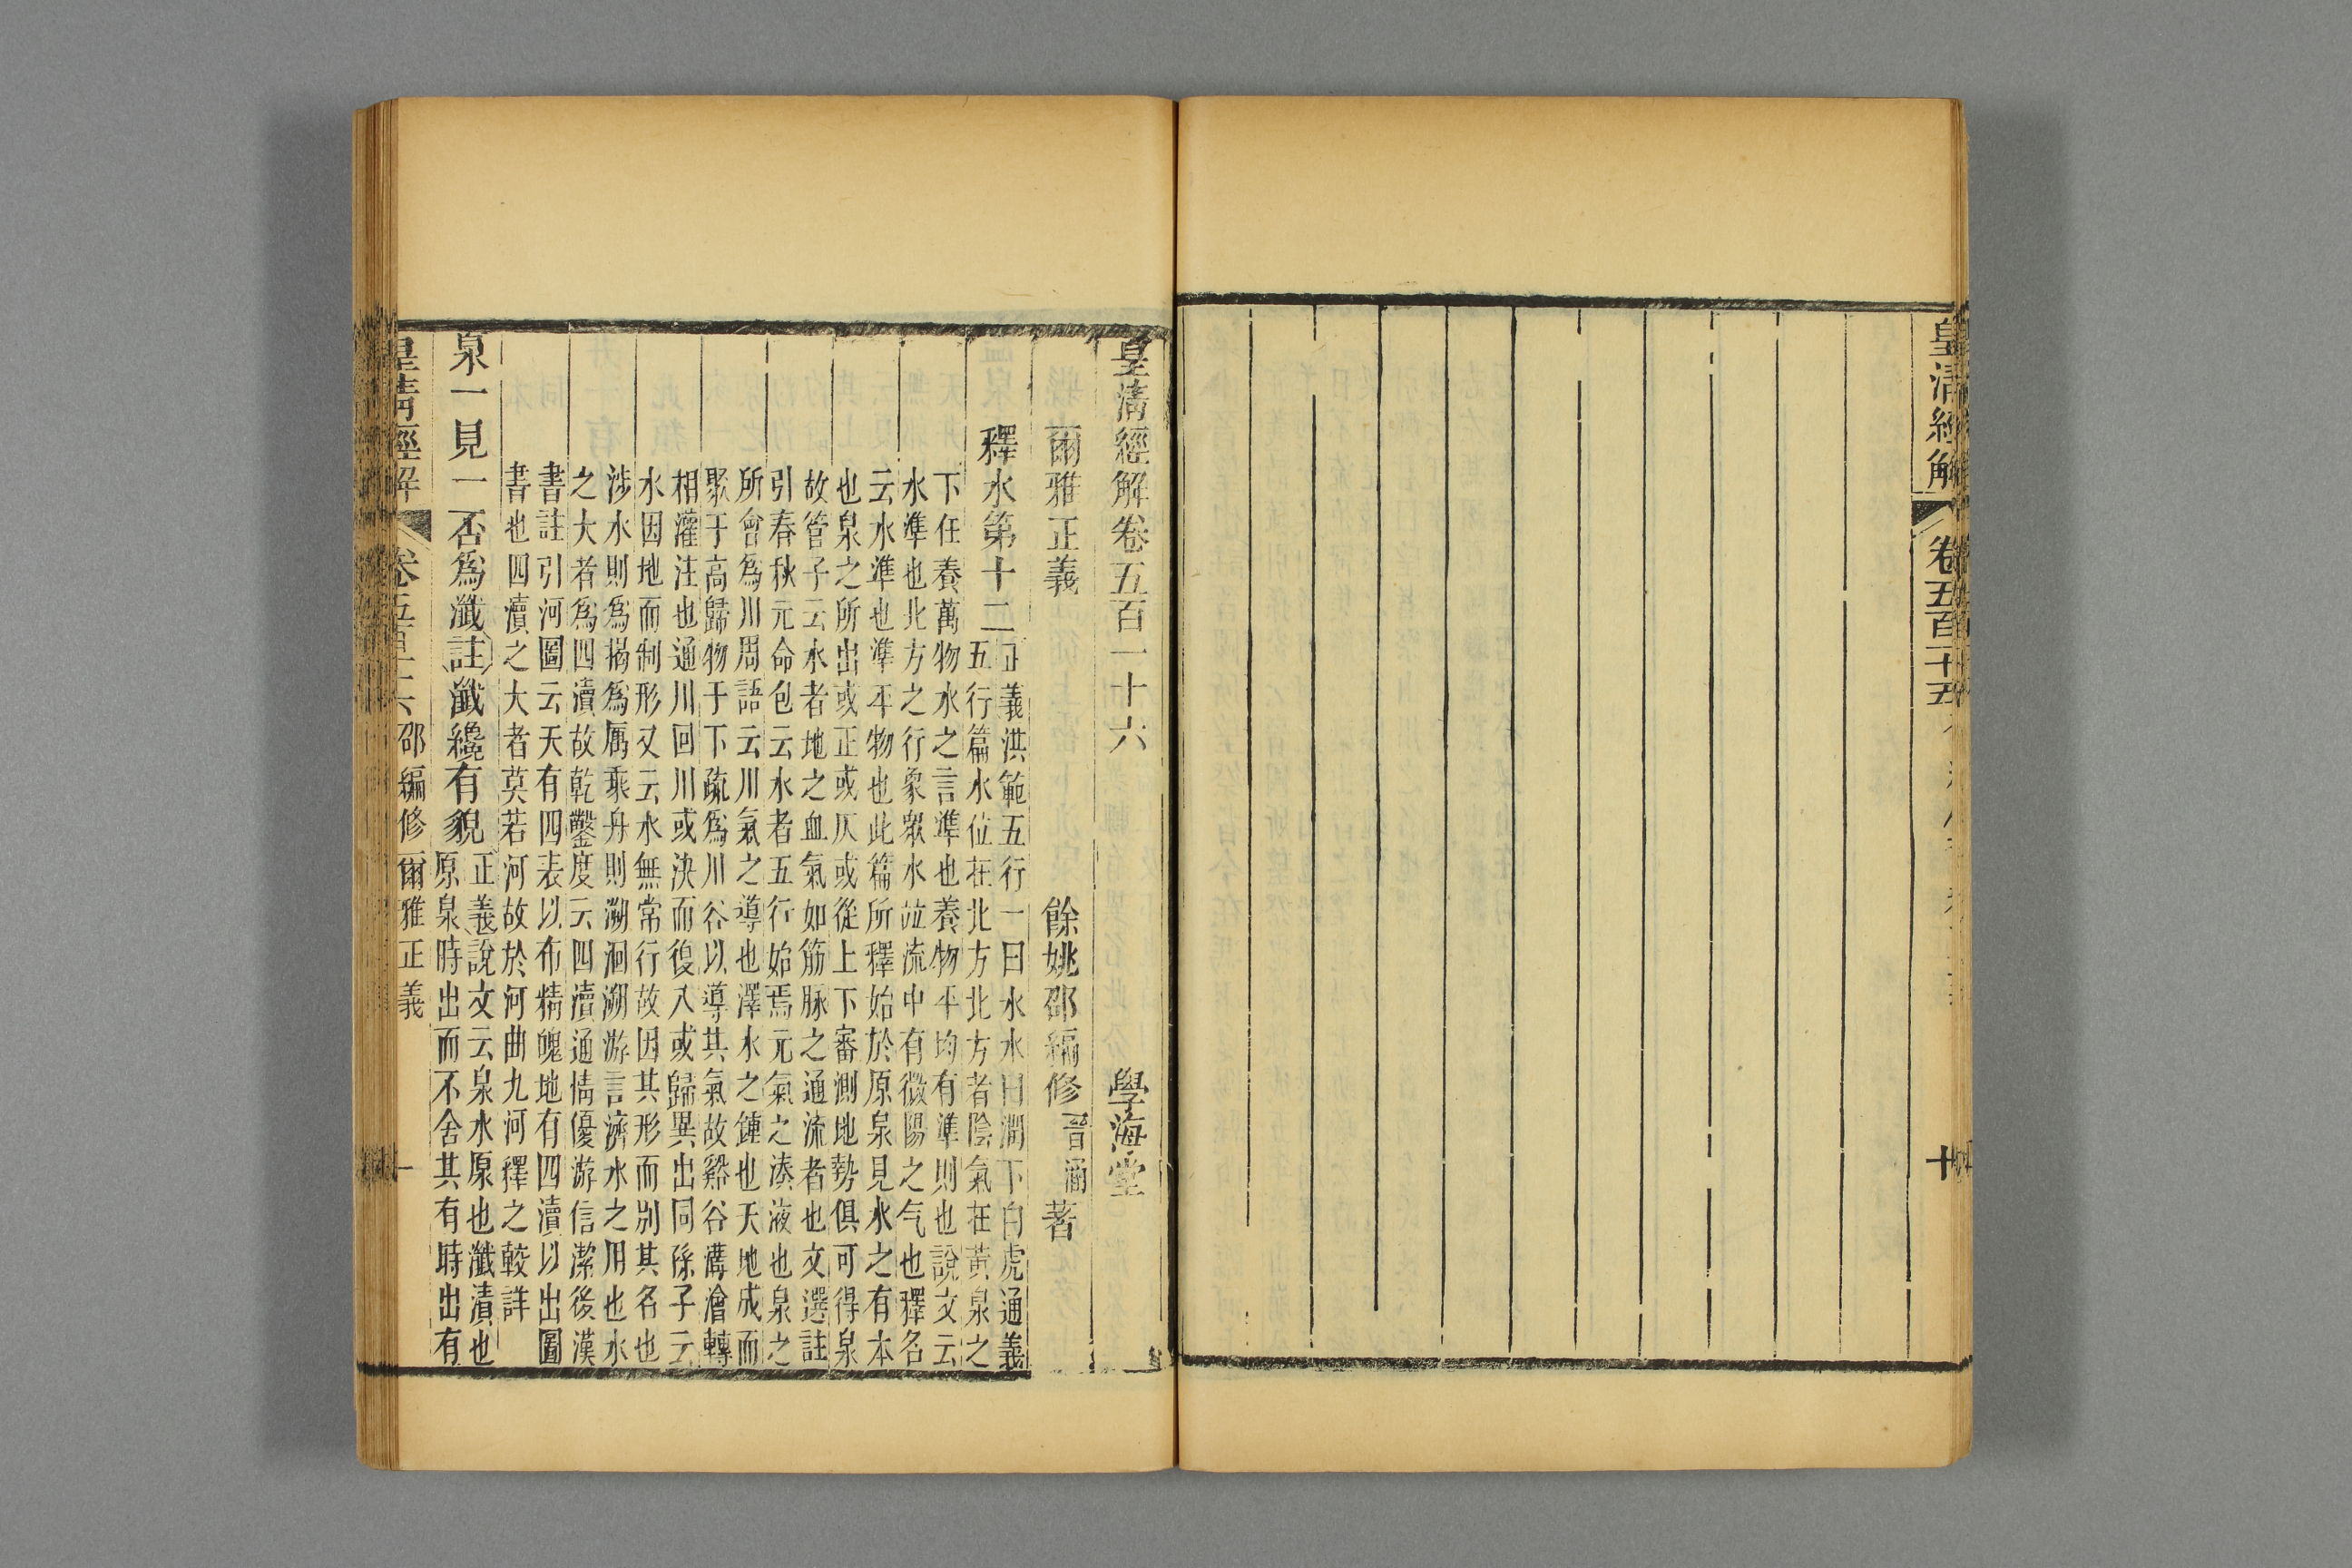 皇清經解
卷五百十五
十
皇清經解卷五百一十六
學海堂
爾雅正義
餘姚邵編修晉涵著
釋水第十二
正義洪範五行一曰水水曰潤下白虎通義
五行篇水位在北方北方者陰氣在黃泉之
下任養萬物水之言準也養物平均有準則也說文云
水準也北方之行象眾水竝流中有微陽之气也釋名
云水準也準平物也此篇所釋始於原泉見水之有本
也泉之所出或正或仄或從上下審測地勢俱可得泉
故管子云水者地之血氣如筋脈之通流者也文選註
引春秋元命包云水者五行始焉元氣之湊液也泉之
所會為川周語云川氣之導也澤水之鍾也天地成而
聚于高歸物于下疏為川谷以導其氣故谿谷溝澮轉
相灌注也通川回川或決而復入或歸異出同孫子云
水因地而制形又云水無常行故因其形而別其名也
涉水則為揭為厲乘舟則溯洄溯游言濟水之用也水
之大者為四瀆故乾鑿度云四瀆通情優游信潔後漢
書註引河圖云天有四表以布精魄地有四瀆以出圖
書也四瀆之大者莫若河故於河曲九河釋之較詳
泉一見一否為瀸註瀸纔有貌
正義說文云泉水原也瀸漬也
原泉時出而不舍其有時出有
皇清經解
卷五百十六
邵編修爾雅正義
一